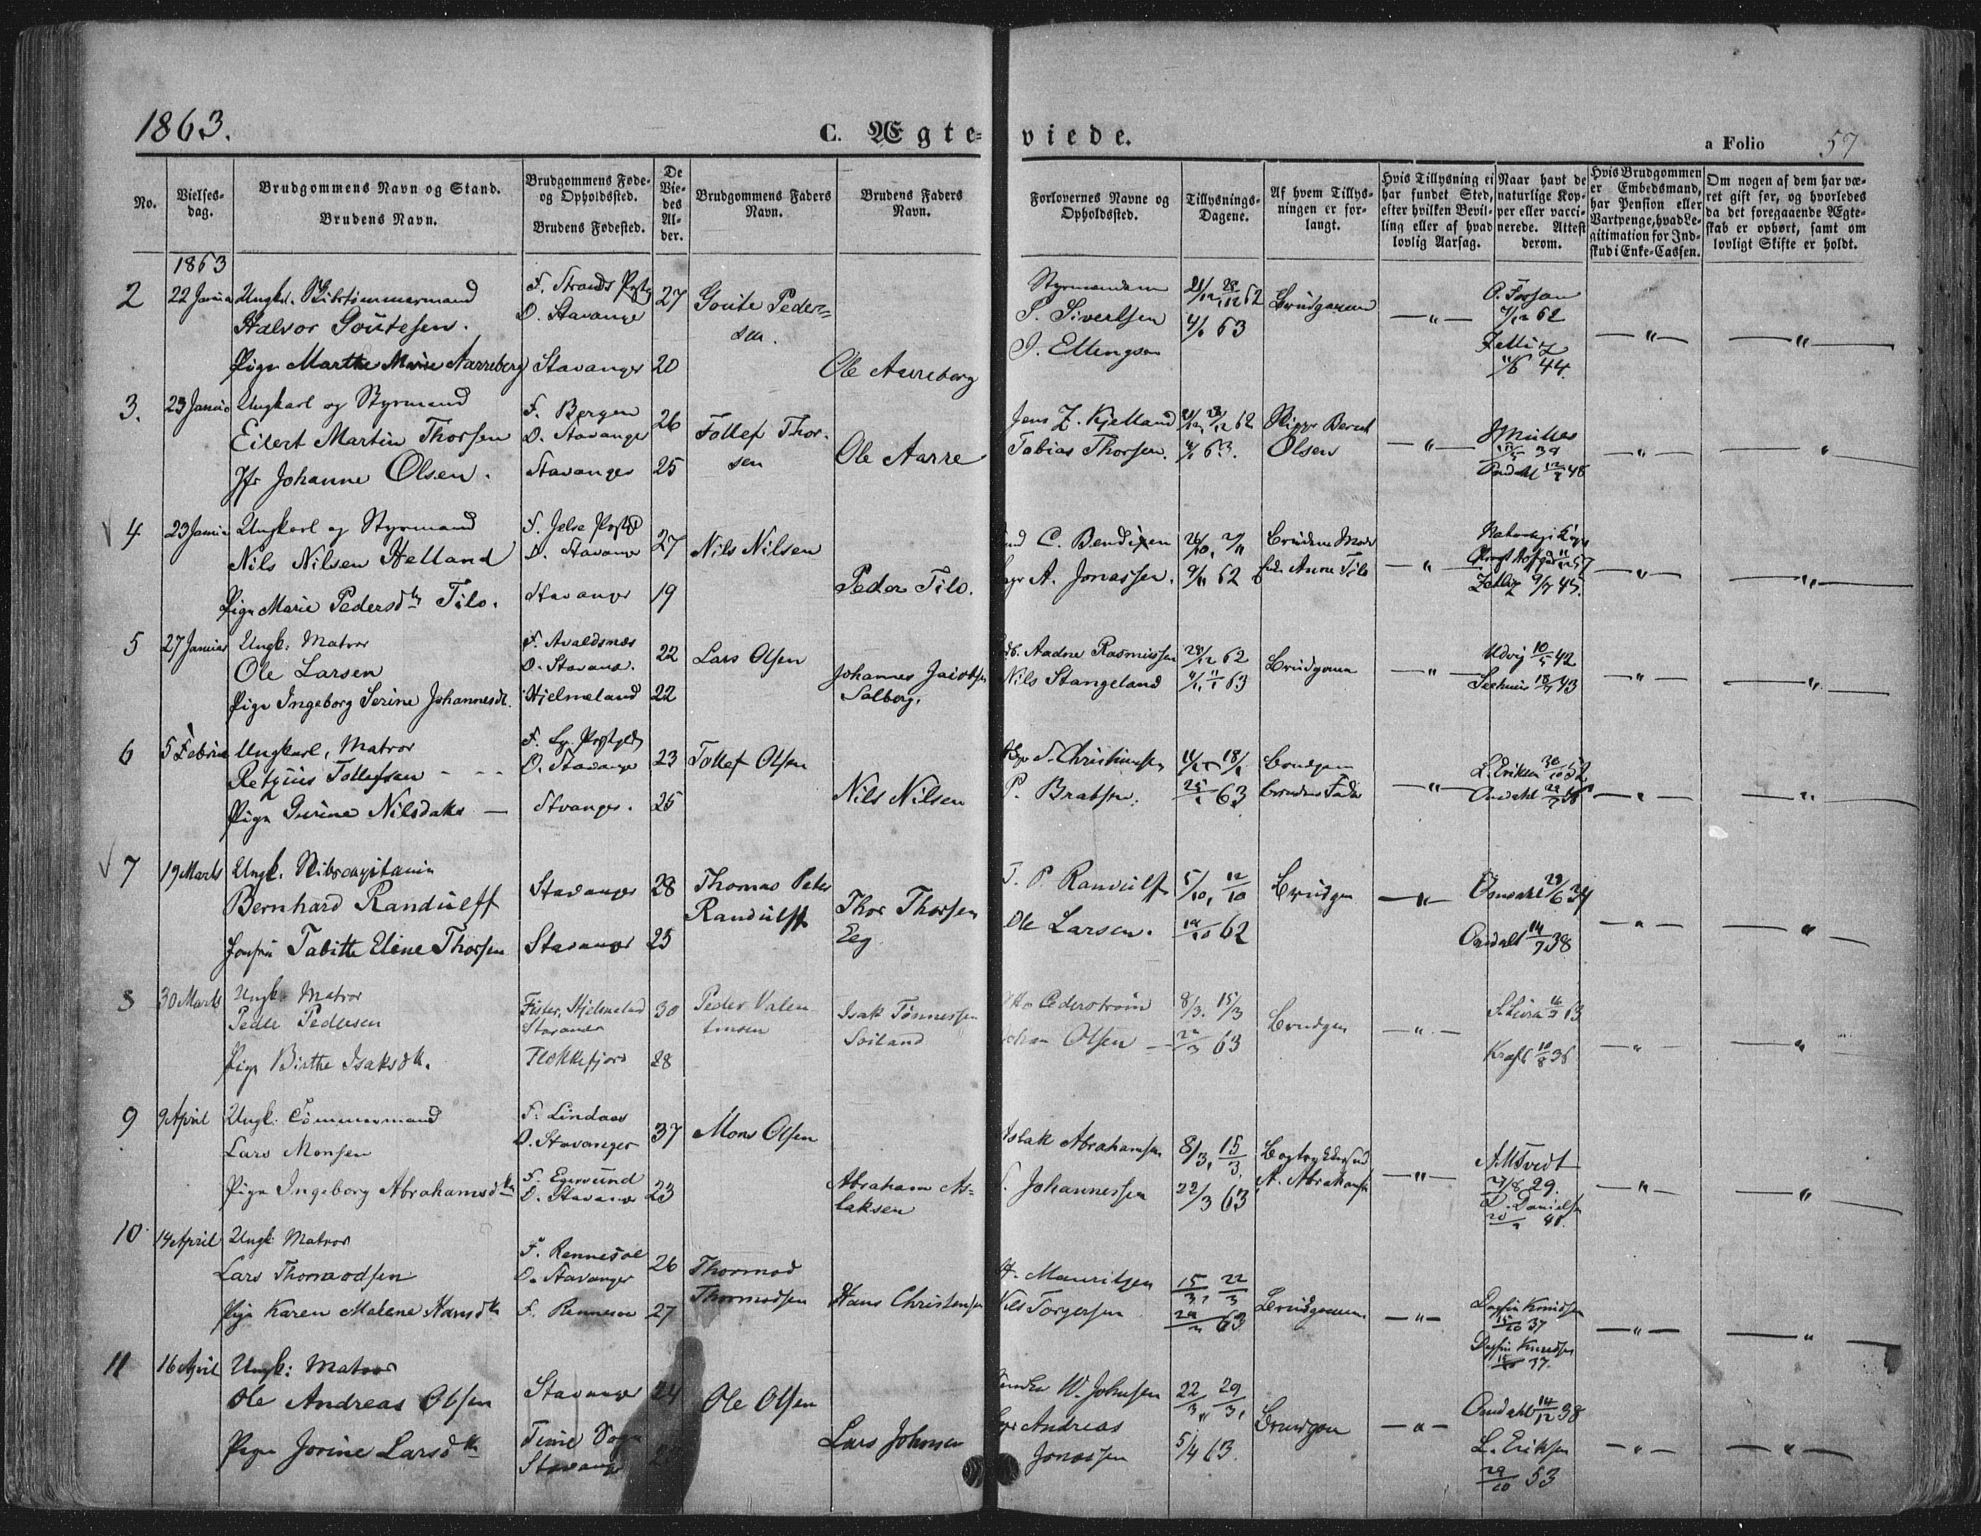 1863.
C. Ægte-viede.
a Folio 57
No.
Vielses-dag.
Brudgommens Navn og Stand.
Brudens Navn.
Brudgommens Føde- og Opholdssted.
Brudens Fødested.
De Viedes Alder.
Brudgommens Faders Navn.
Brudens Faders Navn.
Forlovernes Navne og Opholdssted.
Tillysnings-Dagene.
Af hvem Tillysningen er forlangt.
Hvis Tillysning ei har fundet Sted, efter hvilken Bevilling eller af hvad lovlig Aarsag.
Naar havt de naturlige Kopper eller vaccinerede. Attest derom.
Hvis Brudgommen er Embedsmand, har Pension eller Vartpenge, hvad Legitimation for Indskud i Enke-Cassen.
Om nogen af dem har været gift før, og hvorledes da det foregaaende Ægteskab er ophørt, samt om lovligt Skifte er holdt.
1863
2 22 Januar Ungk. Skibstømmermand
Halvor Goutesen.
F. Strands Præstg
O. Stavanger 27 Goute Pedersen.
Pige Marthe Marie Aarreberg Stavanger 20 Ole Aarreberg
Styrmændene
S. Sivertsen
J. Ellingsen
21/12, 28/12 62
4/1 63 Brudgommen
62
Zetlitz
44.
3. 23 Januar Ungkarl og Styrmand
Eilert Martin Thorsen
F. Bergen
O. Stavanger 26 Tollef Thorsen
Jfr Johanne Olsen. Stavanger 25 Ole Aarre
Jens Z. Kjelland
Tobias Thorsen.
62
63. Skippr Bernt
Olsen
Müller
39
Omdahl 48
4. 23 Januar Ungkarl og Styrmand
Nils Nilsen Helland
F. Jelse Præstg
O. Stavanger 27 Nils Nilsen
Pige Marie Pedersdtr Tilo. Stavanger 19 Peder Tilo.
C. Bendixen
A. Jonassen.
26/10, 2/11
9/11 62 Brudens Moder
Enke Anne Tilo
57
Zetlitz 9/7 45.
5 27 Januar Ungk. Matros
Ole Larsen
F. Avaldsnæs
O. Stavang. 22 Lars Olsen
Pige Ingeborg Serine Johannesdt. Hjelmeland 22 Johannes Jacobsen
Solberg.
Aadne Rasmussen
Nils Stangeland
28/12 62
4/1, 11/1 63 Brudgom
Udvig 10/5 42
18/7 43
6 5 Februar Ungkarl, Matros
Retzius Tollefsen
O. Stavanger 23 Tollef Olsen
Pige Gurine Nilsdatter Stvanger. 25 Nils Nilsen
S. Christiansen
P. Bratsen.
11/1 18/1
25/1 63 Brudgom
Brudens Fader
L. Eriksen 30/10 52
Omdahl
7 19 Marts Ungk. Skibscapitain
Bernhard Randulff Stavanger 28 Thomas Peter
Randulff
Jomfru Tabitte Eline Thorsen Stavanger 25 Thor Thorsen
Eeg
T. P. Randulff
Ole Larsen.
5/10, 12/10
19/10 62 Brudgom
Omdahl 29/6 34
Omdahl 14/7 38
8 30 Marts Ungk. Matros
Peder Pedersen
Fister, Hjelmeland
Stavanger 30 Peder Valentinsen
Pige Birthe Isaksdtr. Flekkefjord 28 Isak Tønnessen
Soiland
Otto Cederstrøm
Johan Olsen
8/3. 15/3
22/3 63 Brudgom
Kraft 10/8 36
9 9 April Ungk. Tømmermand
Lars Monsen
F. Lindaas
O. Stavanger 37 Mons Olsen
Pige Ingeborg Abrahamsdtr
F. Egersund
O. Stavanger 23 Abraham Aslaksen
Aslak Abrahamsen
Johannessen
8/3, 15/3.
22/3 63 Bogtrykkersvend
A. Abrahamsen
A. Mtvedt
27/8 29.
D. Danielsen
20/9 40.
10 14 April Ungk. Matros
Lars Thormodsen
F. Rennesøe
O. Stavanger 26 Thormod
Thormodsen
Pige Karen Malene Hansdtr F. Rennesø 27 Hans Christensen
H. Mauritzen
Nils Torgersen
15/3, 22/3
29/3 63 Brudgommen
Dagfin Knudsen
15/10 37
Dagfin Knudsen
15/10 37.
11 16 April Ungk: Matros
Ole Andreas Olsen Stavanger 24 Ole Olsen
Pige Jorine Larsdtr
Time Sogn
Stavanger Lars Johnsen
W. Johnsen
Andreas
Jonassen
22/3, 29/3,
5/4 63. Brudgom
Omdahl 14/12 38
L. Eriksen
29/10 53